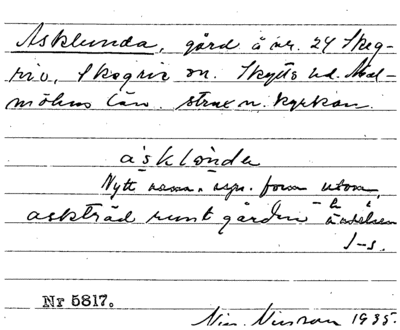 Asklunda, gård å nr. 24 Skeg-
rie, Skegrie sn. Skytts hd. Mal-
möhus län. strax n. kyrkan.
asklọnda
Nytt namn. utom
askträd runt gården
J-s.
Nr 5817.
Nils Nilsson 1935.